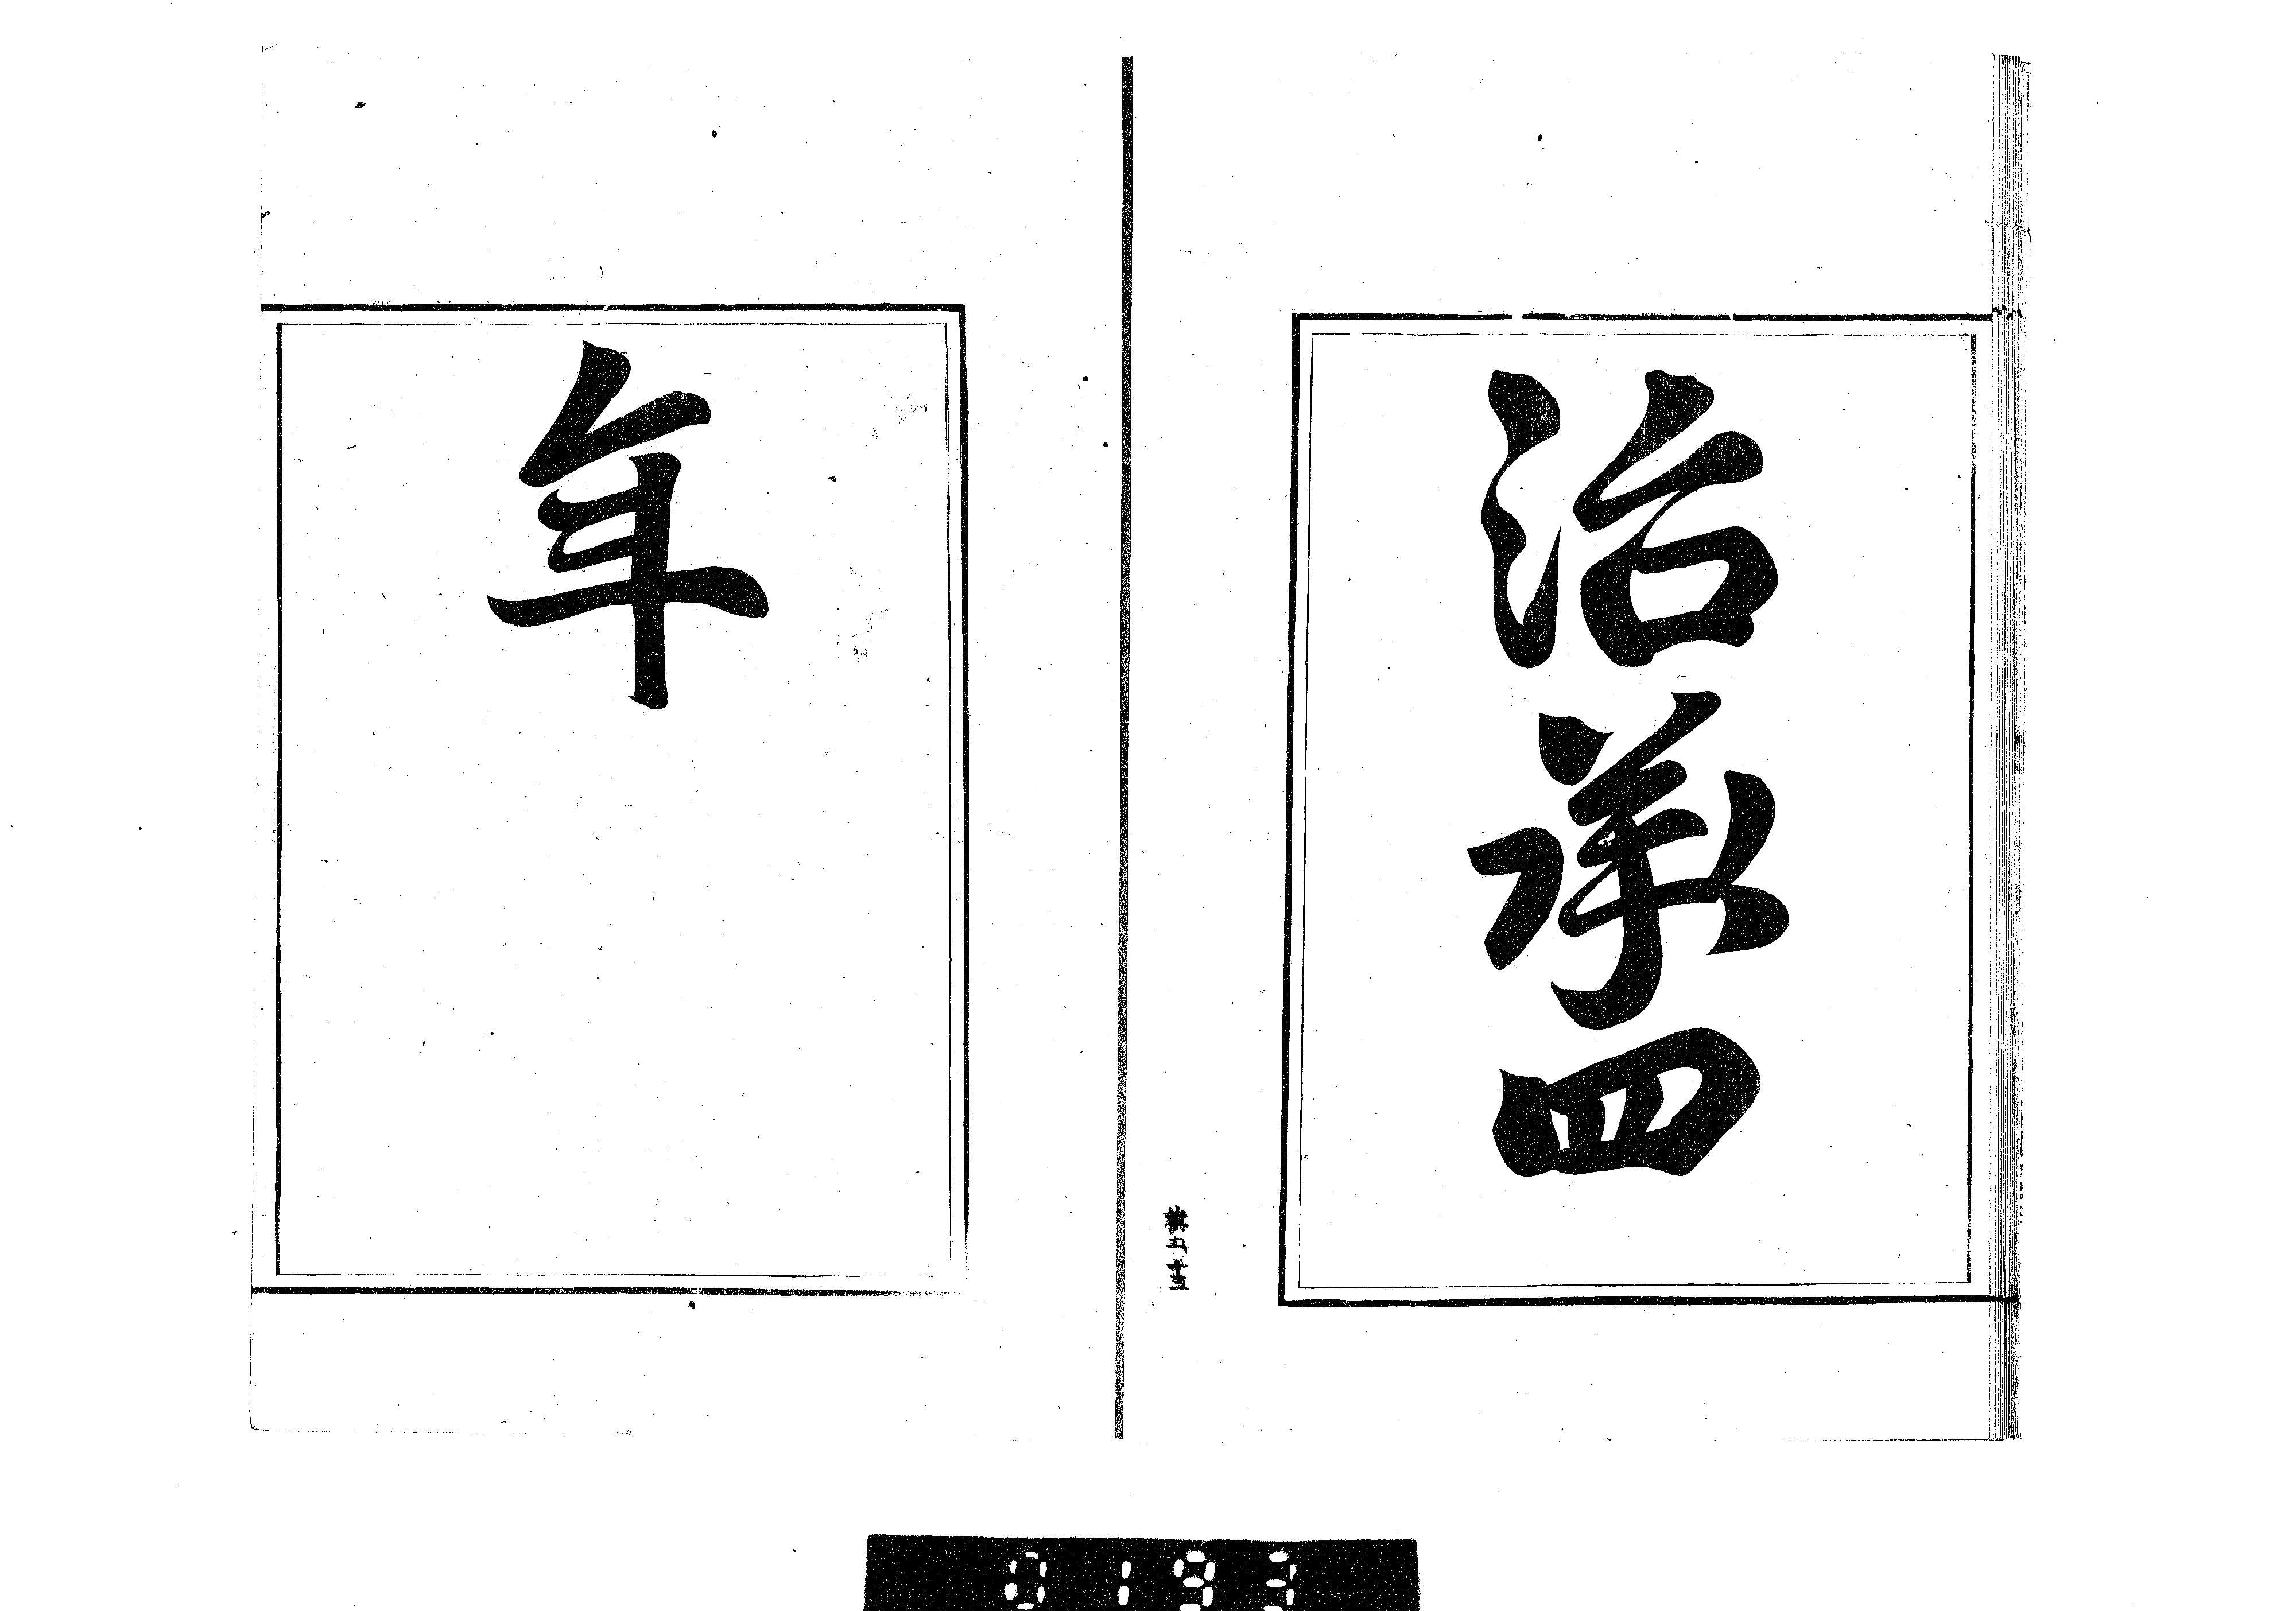 治承四
年
0193